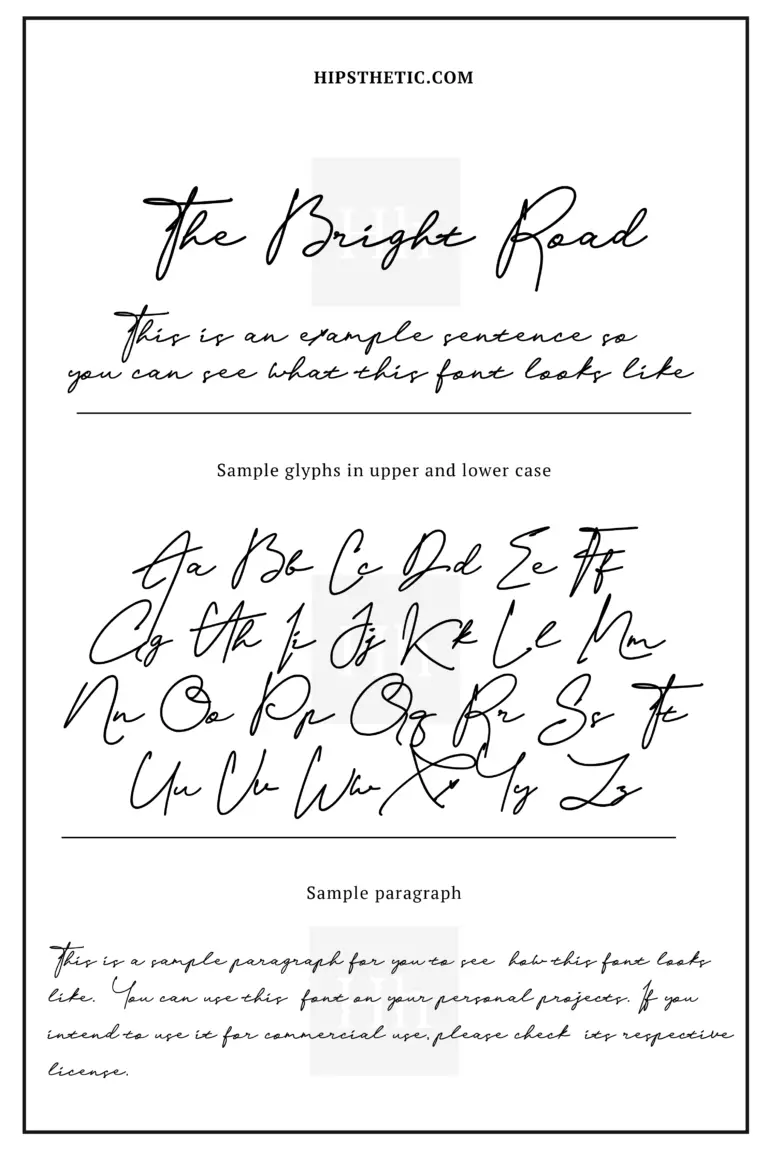 HIPSTHETIC.COM
The Bright Road
This is an example sentence so
you can see what this font looks like
Sample glyphs in upper and lower case
Aa Bb Cc Dd Ee Ff
Gg Hh Ii Jj Kk Ll Mm
Nn Oo Pp Qq Rr Ss Tt
Uu Vv Ww Xx Yy Zz
Sample paragraph
This is a sample paragraph for you to see how this font looks
like. You can use this font on your personal projects. If you
intend to use it for commercial use, please check its respective
license.